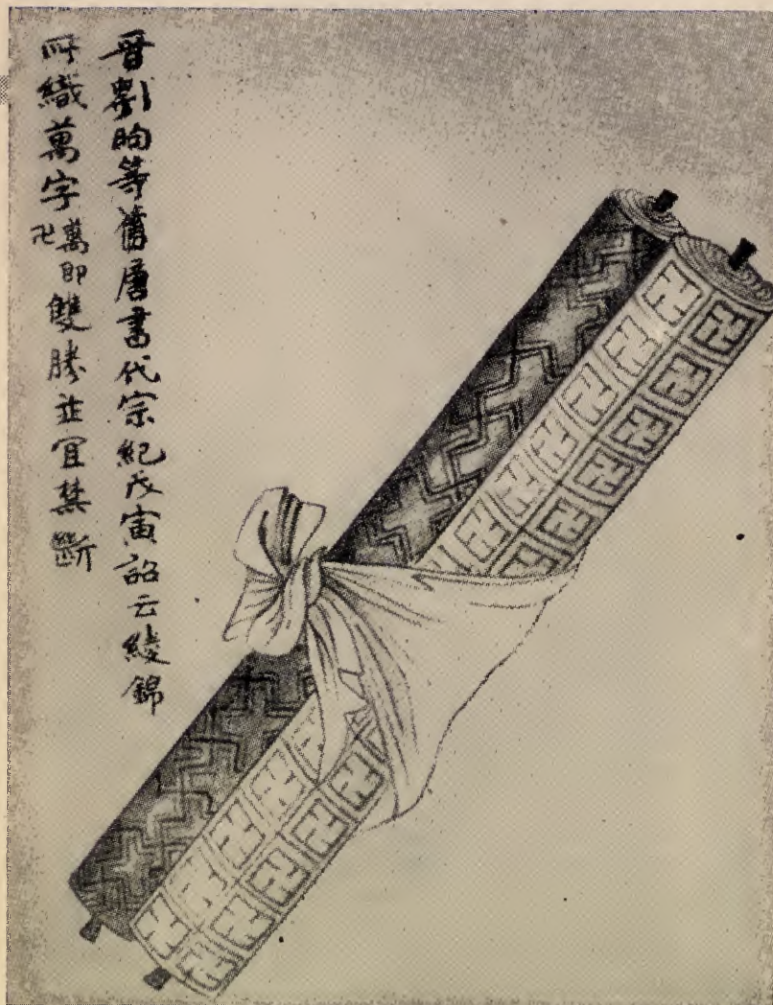 晉劉昫等舊唐書代宗紀戊寅詔云綾錦
所織萬字萬即卍雙勝並宜禁斷